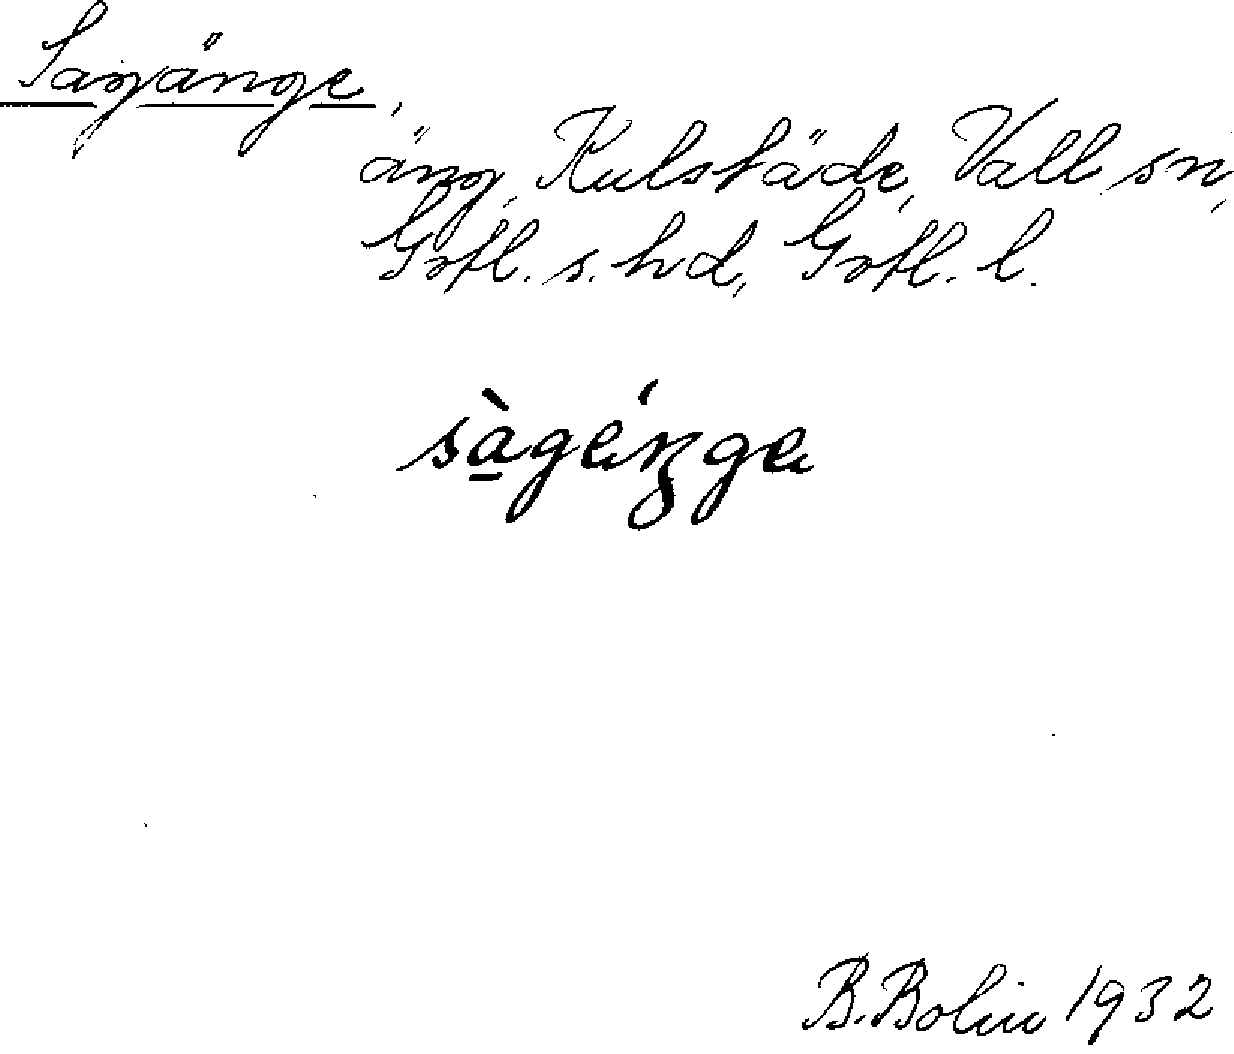 Sagänge,
äng, Kulstäde, Vall sn,
Gotl. s. hd, Gotl. l.
sàgέŋgɛ
B. Bolin 1932